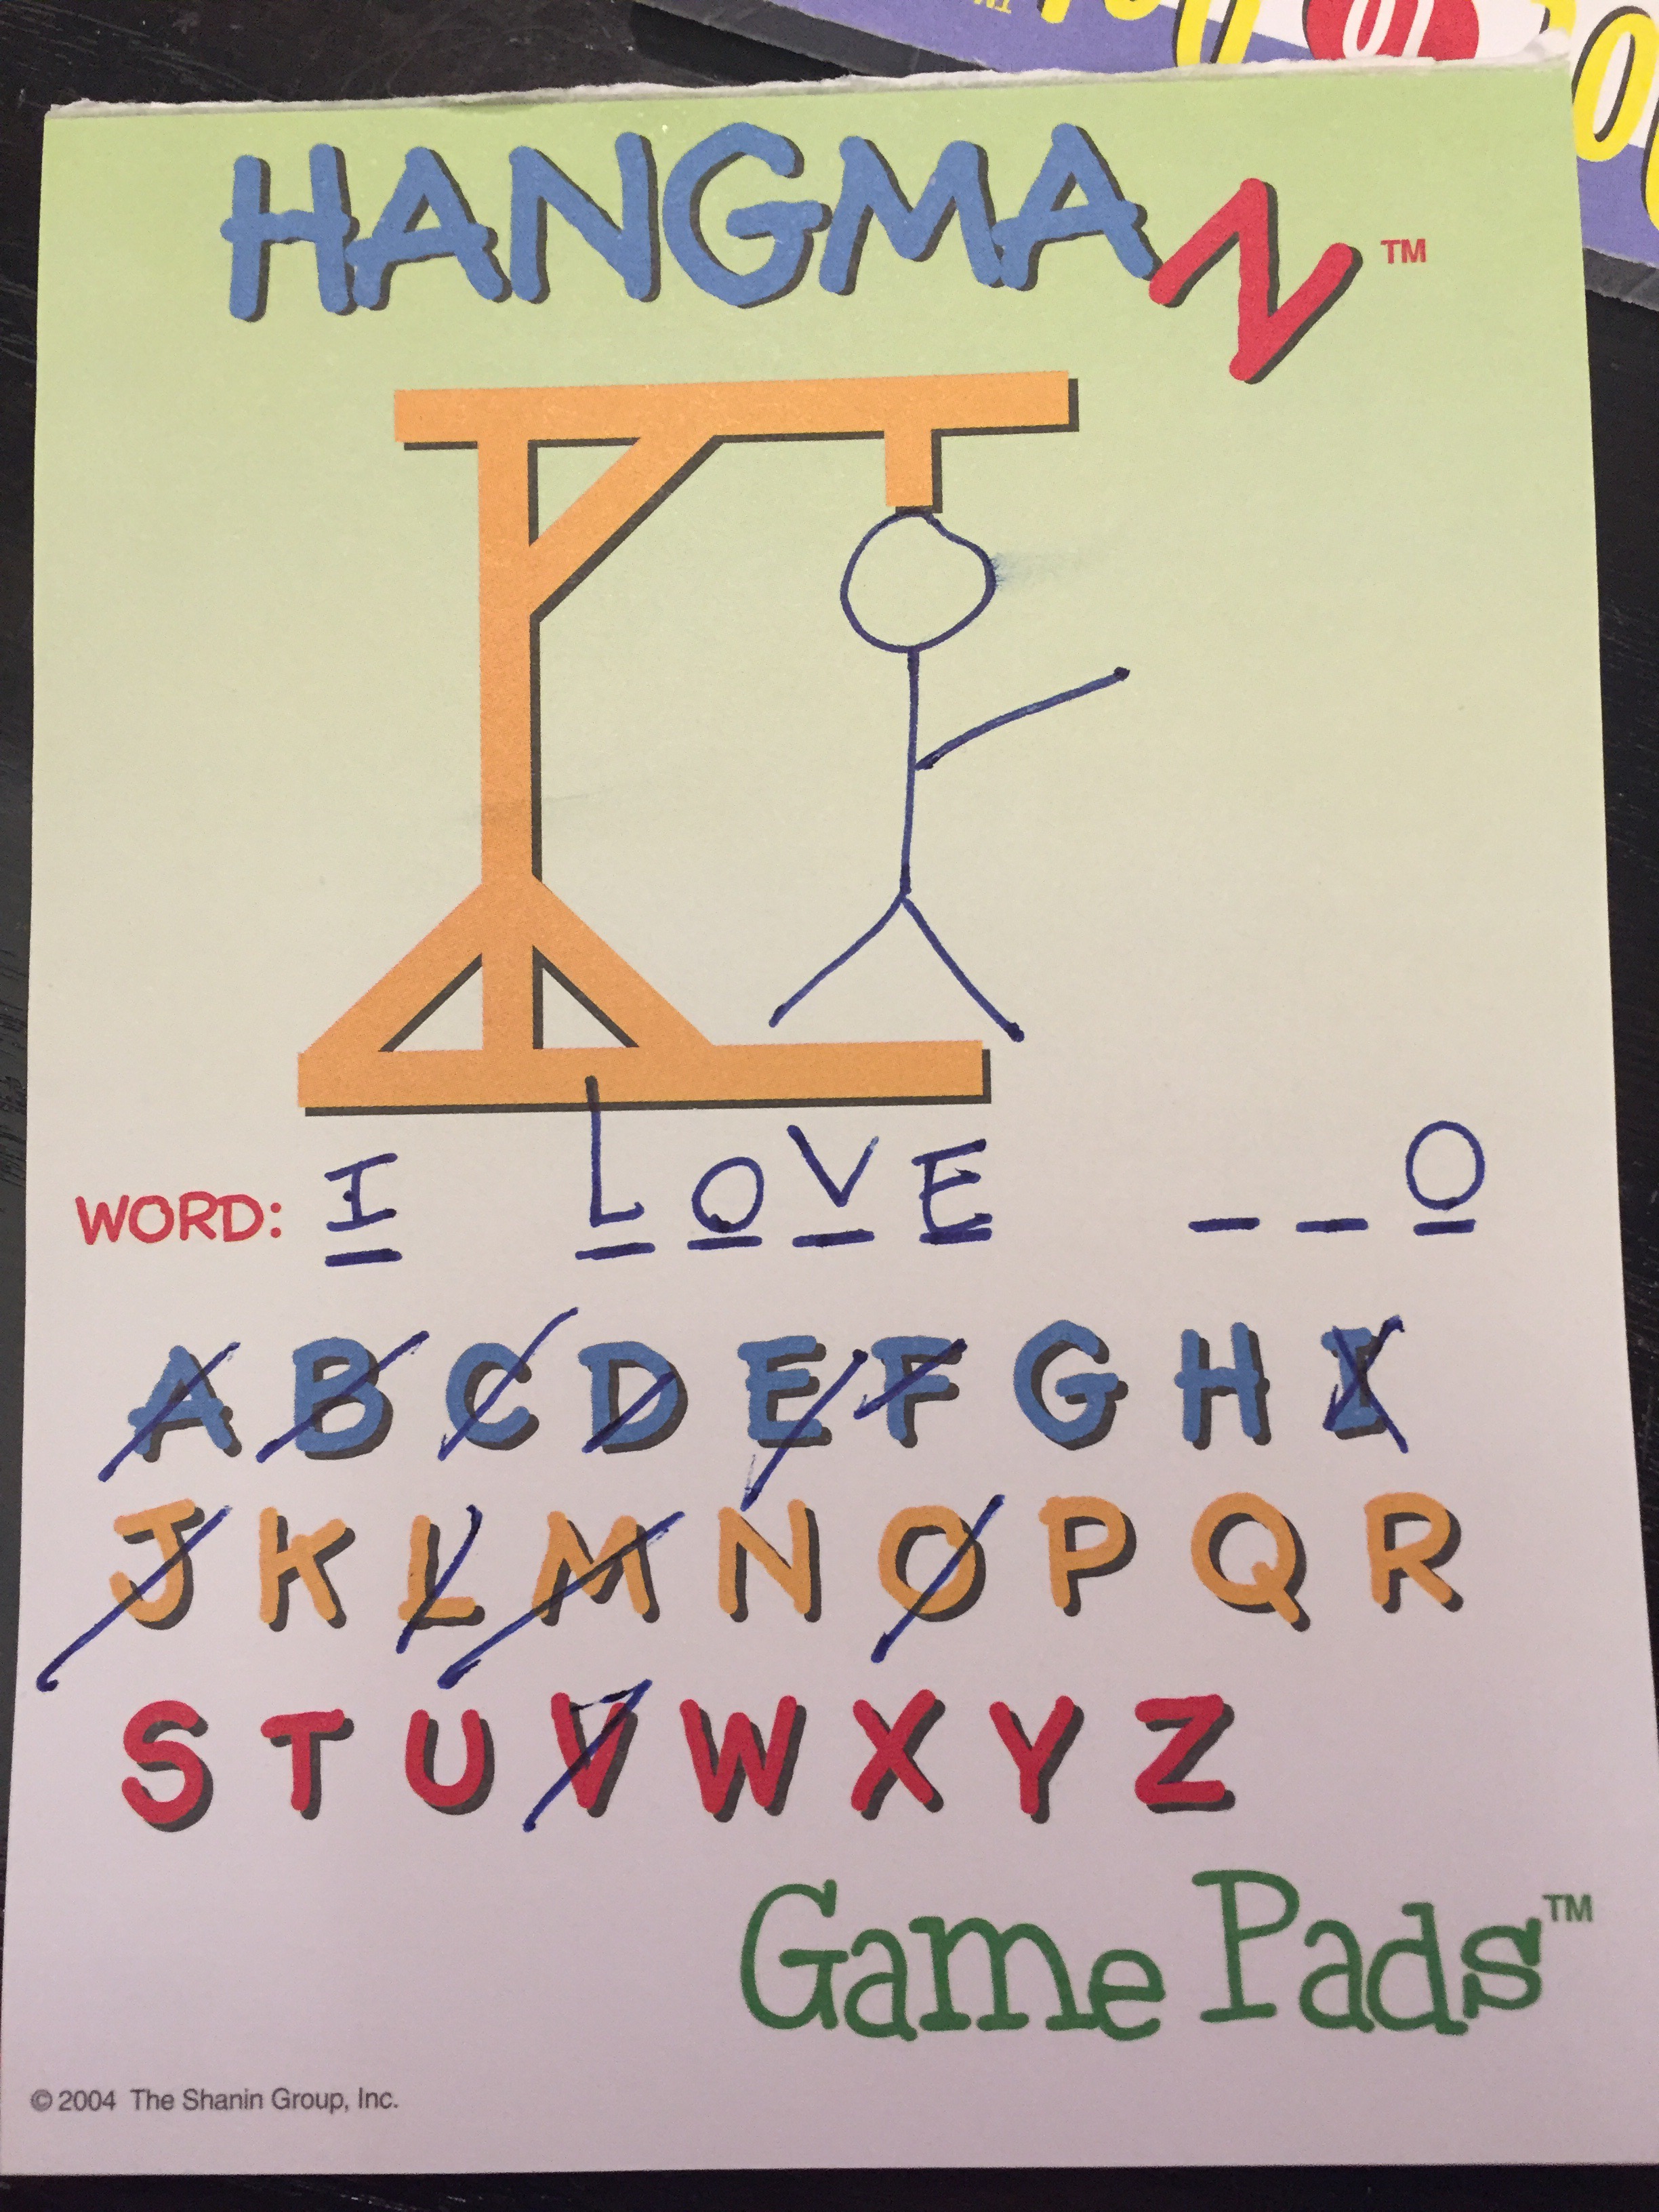 HANGMAN™
WORD: I LOVE _ _ O
A B C D E F G H I
J K L M N O P Q R
S T U V W X Y Z
Game Pads™
© 2004 The Shanin Group, Inc.